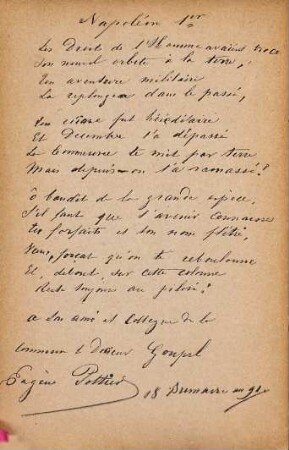 Napoléon 1er
Les Droits de l'Homme avaient tracé
Son nouvel orbite à la terre,
Un aventurier militaire
La replongea dans le passé,
Un crime fut héréditaire
Et Décembre t'a dépassé
La Commune te mit par terre
Mais depuis on t'a ramassé!
O bandit de la grande espèce,
S'il faut que l'avenir connaisse
Tes forfaits et ton nom flétri,
Viens, forçat qu'on te reboulonne
Et, debout, sur cette colonne
Reste toujours au pilori!
a son ami et collègue de la
Commune le Docteur Goupil
Eugène Pottier
18 Brumaire an 91